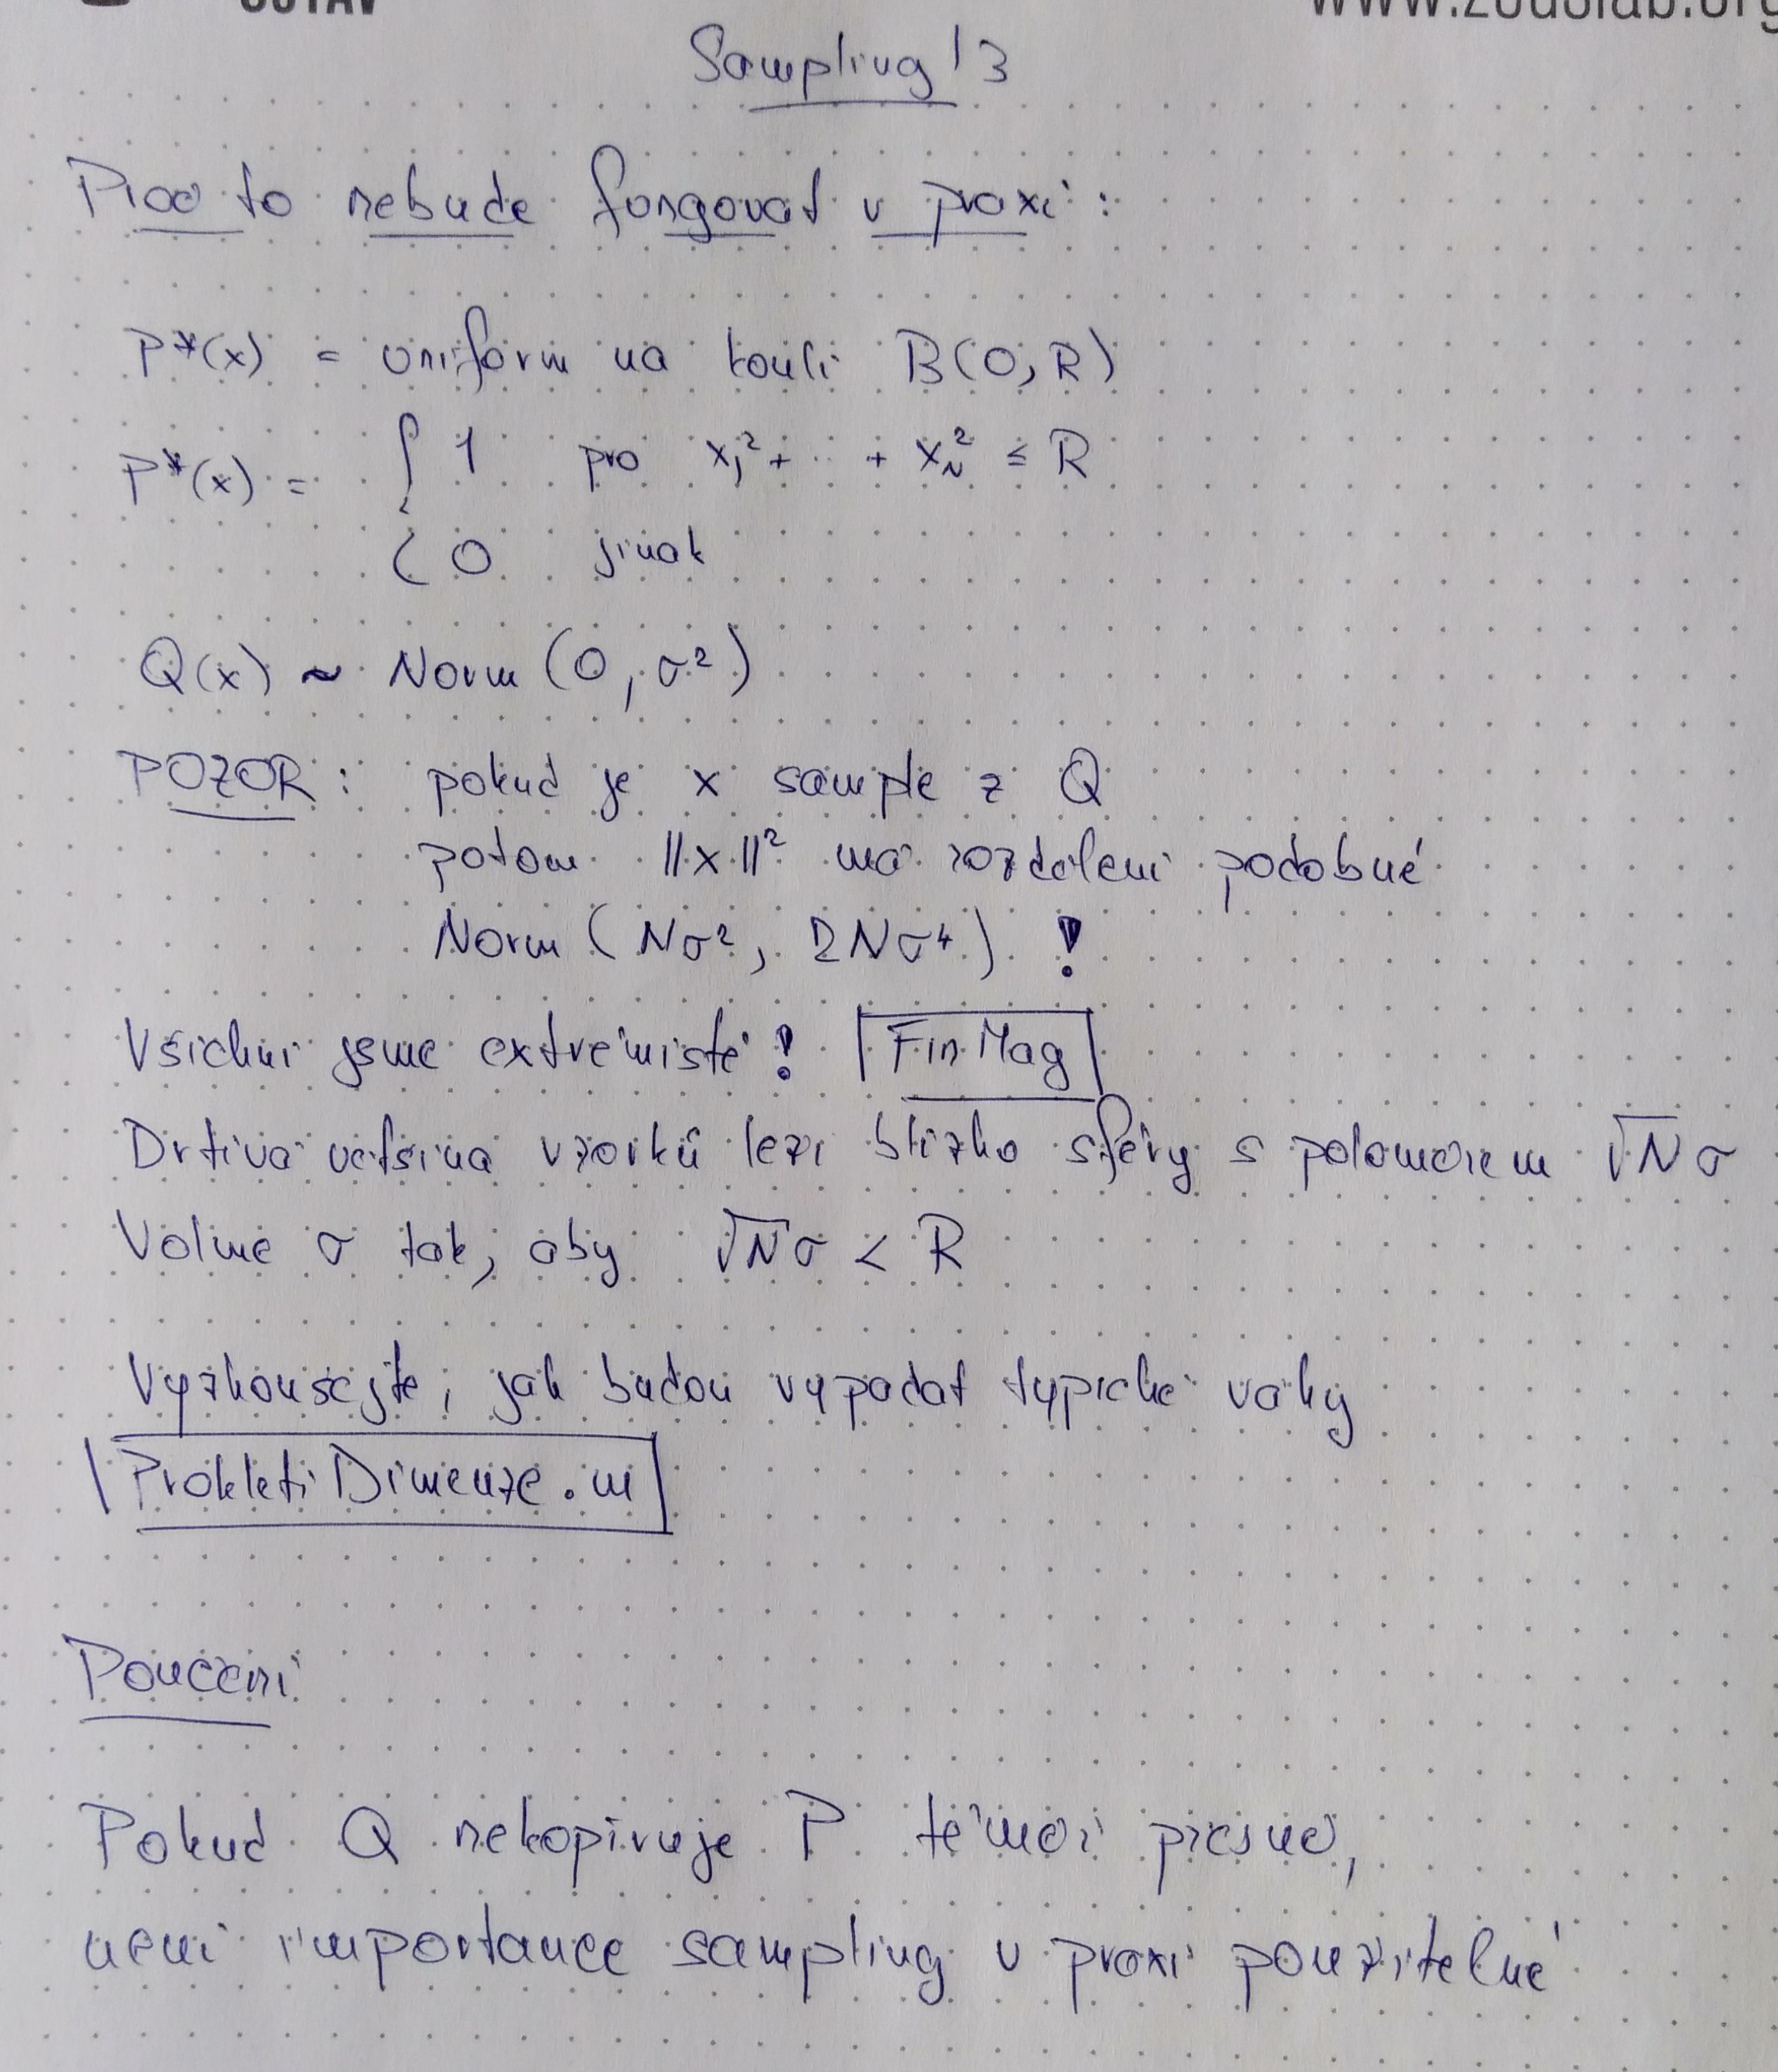 ÚSTAV www.zduslab.org
Sampling 13
Proč to nebude fungovat v praxi:
P*(x) = uniform na kouli B(0,R)
P*(x) = { 1 pro x₁² + ... + x_N² ≤ R
0 jinak
Q(x) ~ Norm (0, σ²)
POZOR: pokud je x sample z Q
potom ||x||² má rozdělení podobné
Norm (Nσ², 2Nσ⁴) !
Všichni jsme extrémisté! FinMag
Drtivá většina vzorků leží blízko sféry s poloměrem √N σ
Volme σ tak, aby √N σ < R
Vyzkoušejte, jak budou vypadat typické váhy
ProkletiDimenze.m
Poučení
Pokud Q nekopíruje P téměř přesně,
není importance sampling v praxi použitelné